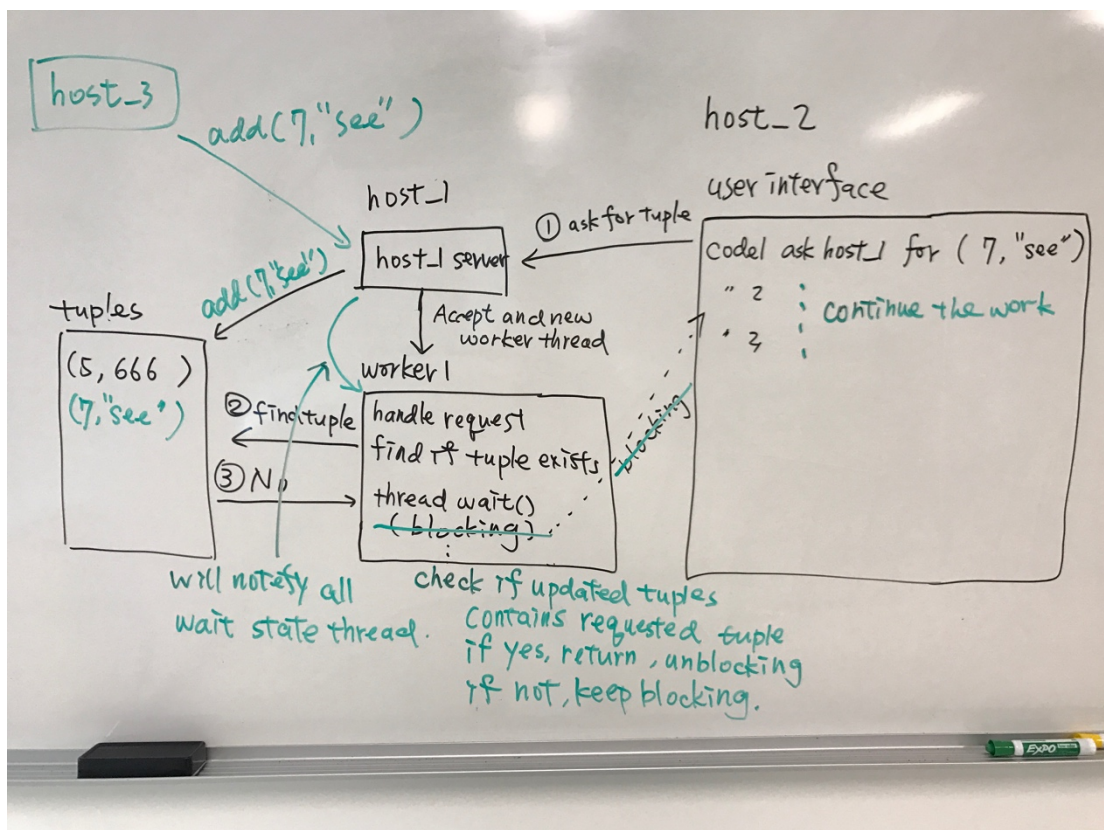 host_3
add(7,"see")
host_2
user interface
host_1
① ask for tuple
host_1 server
code1 ask host_1 for (7,"see")
" 2
continue the work
" 3
add(7,"see")
Accept and new
worker thread
tuples
(5, 666 )
(7,"see")
worker1
② find tuple
③ No
handle request
find if tuple exists
thread wait()
(blocking)
blocking
will notefy all
wait state thread.
check if updated tuples
contains requested tuple
if yes, return, unblocking
if not, keep blocking.
EXPO